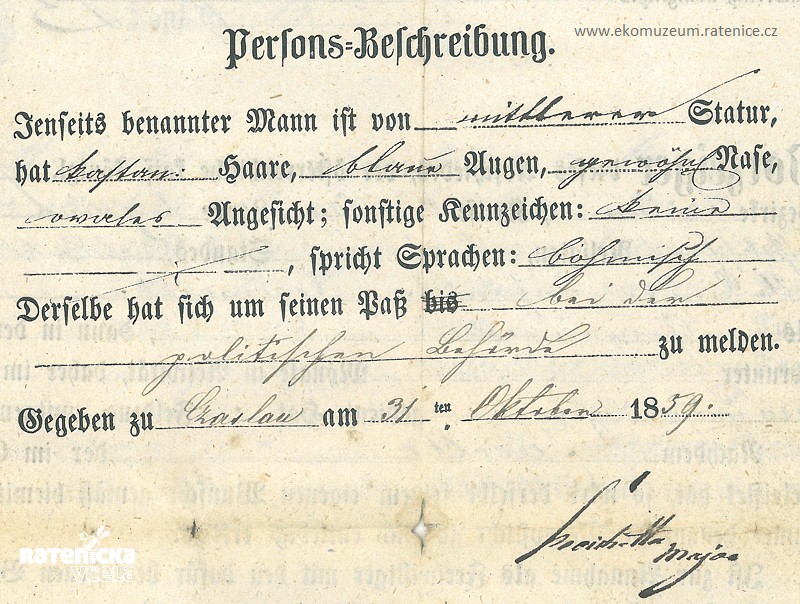 www.ekomuzeum.ratenice.cz
Persons=Beschreibung.
Jenseits benannter Mann ist von mittlerer Statur,
hat kastan: Haare, blaue Augen, gewöhnl Nase,
ovales Angesicht; sonstige Kennzeichen: keine
, spricht Sprachen: böhmisch
Derselbe hat sich um seinen Paß bis bei der
politischen Behörde zu melden.
Gegeben zu Czaslau am 31 ten Oktober 1859.
Major
RATENICKÁ
včela